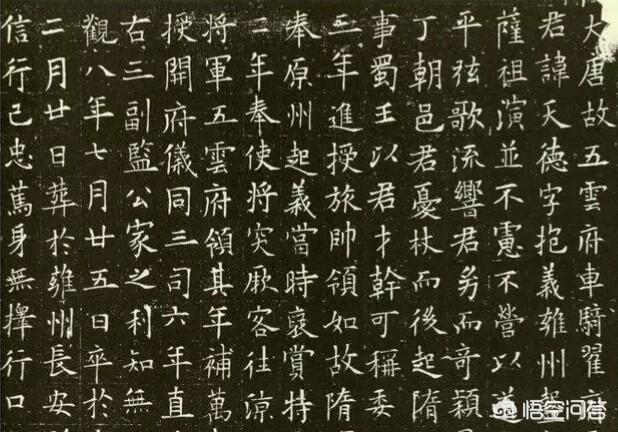 大唐故五雲府車騎翟
君諱天德字抱義雍州盩
薩祖演並不憲不營以
平弦歌流響君劣而奇穎
丁朝邑君憂杖而後起隋
事蜀王以君才幹可稱委
三年進授旅帥領如故隋
奉原州起義當時褒賞特
二年奉使將突厥客往涼
將軍五雲府領其年補萬
授開府儀同三司六年直
右三副監公家之利知無
觀八年七月廿五日卒於
二月廿日葬於雍州長安
信行己忠篤身無擇行口
悟空问答